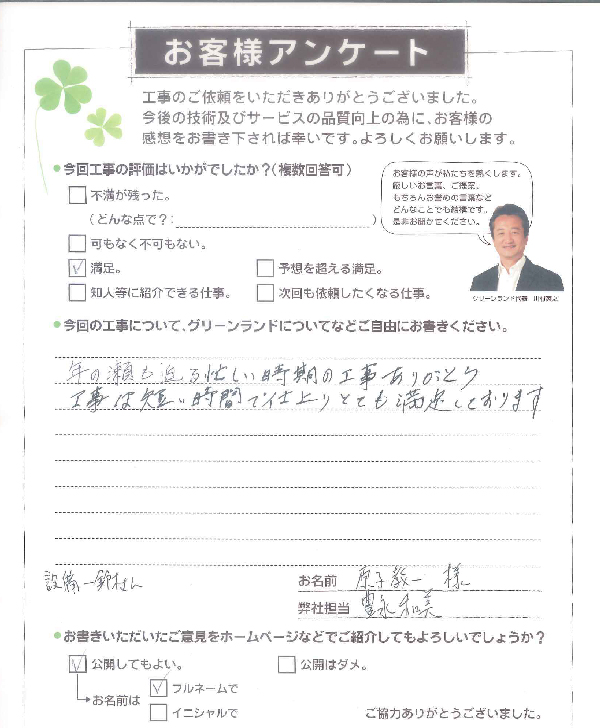 お客様アンケート
工事のご依頼をいただきありがとうございました。
今後の技術及びサービスの品質向上の為に、お客様の
感想をお書き下されば幸いです。よろしくお願いします。
今回工事の評価はいかがでしたか？（複数回答可）
不満が残った。
（どんな点で？：　）
可もなく不可もない。
満足。
予想を超える満足。
知人等に紹介できる仕事。
次回も依頼したくなる仕事。
お客様の声が私たちを熱くします。
厳しいお言葉、ご提案、
もちろんお誉めの言葉など
どんなことでも結構です。
是非お聞かせください。
グリーンランド代表
今回の工事について、グリーンランドについてなどご自由にお書きください。
年の瀬も迫る忙しい時期の工事ありがとう
工事は短い時間で仕上りとても満足しております
設備 鈴木さん
お名前 原子敬一 様
弊社担当 豊永和美
お書きいただいたご意見をホームページなどでご紹介してもよろしいでしょうか？
公開してもよい。
公開はダメ。
お名前は
フルネームで
イニシャルで
ご協力ありがとうございました。